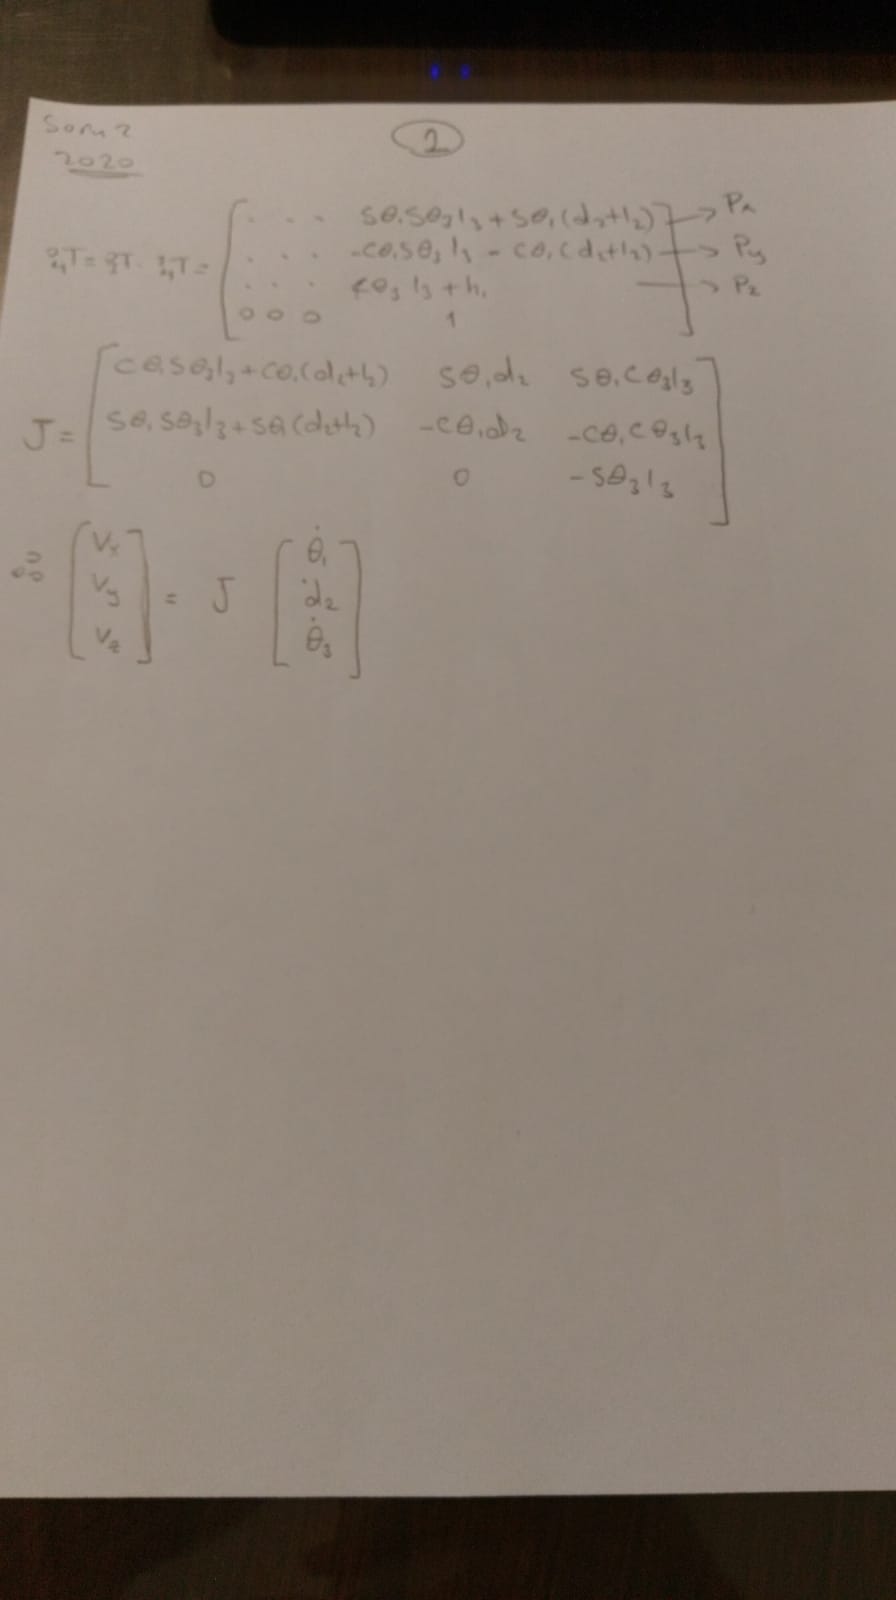 Soru 2
2020
2
⁰₄T = ⁰₃T · ³₄T =
[ . . . sθ₁sθ₃l₃ + sθ₁(d₂+l₂) ] → Px
[ . . . -cθ₁sθ₃l₃ - cθ₁(d₂+l₂) ] → Py
[ . . . cθ₃l₃ + h₁ ] → Pz
[ 0 0 0 1 ]
J =
[ cθ₁sθ₃l₃ + cθ₁(d₂+l₂) sθ₁d₂ sθ₁cθ₃l₃ ]
[ sθ₁sθ₃l₃ + sθ₁(d₂+l₂) -cθ₁d₂ -cθ₁cθ₃l₃ ]
[ 0 0 -sθ₃l₃ ]
∴ [ Vx Vy Vz ] = J [ θ̇₁ ḋ₂ θ̇₃ ]